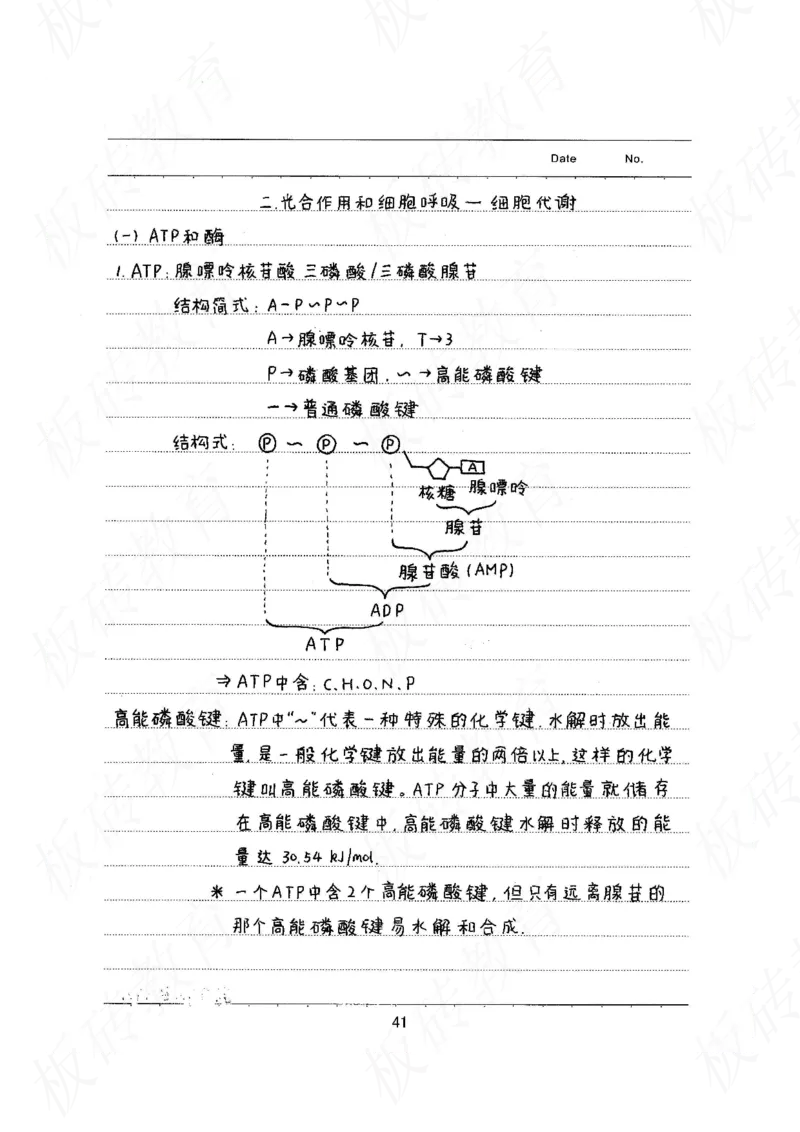 Date No.
二.光合作用和细胞呼吸一 细胞代谢
(一) ATP和酶
1. ATP: 腺嘌呤核苷酸 三磷酸/三磷酸腺苷
结构简式: A-P~P~P
A→腺嘌呤核苷, T→3
P→磷酸基团. ~→高能磷酸键
一→普通磷酸键
结构式: P ~ P ~ P
A
核糖 腺嘌呤
腺苷
腺苷酸(AMP)
ADP
ATP
⇒ATP中含: C.H.O.N.P
高能磷酸键: ATP中"~"代表一种特殊的化学键.水解时放出能
量,是一般化学键放出能量的两倍以上,这样的化学
键叫高能磷酸键。ATP分子中大量的能量就储存
在高能磷酸键中,高能磷酸键水解时释放的能
量达 30.54 kJ/mol.
* 一个ATP中含2个高能磷酸键,但只有远离腺苷的
那个高能磷酸键易水解和合成.
41
板砖教育
板砖教育
板砖教育
板砖教育
板砖教育
板砖教育
板砖教育
板砖教育
板砖教育